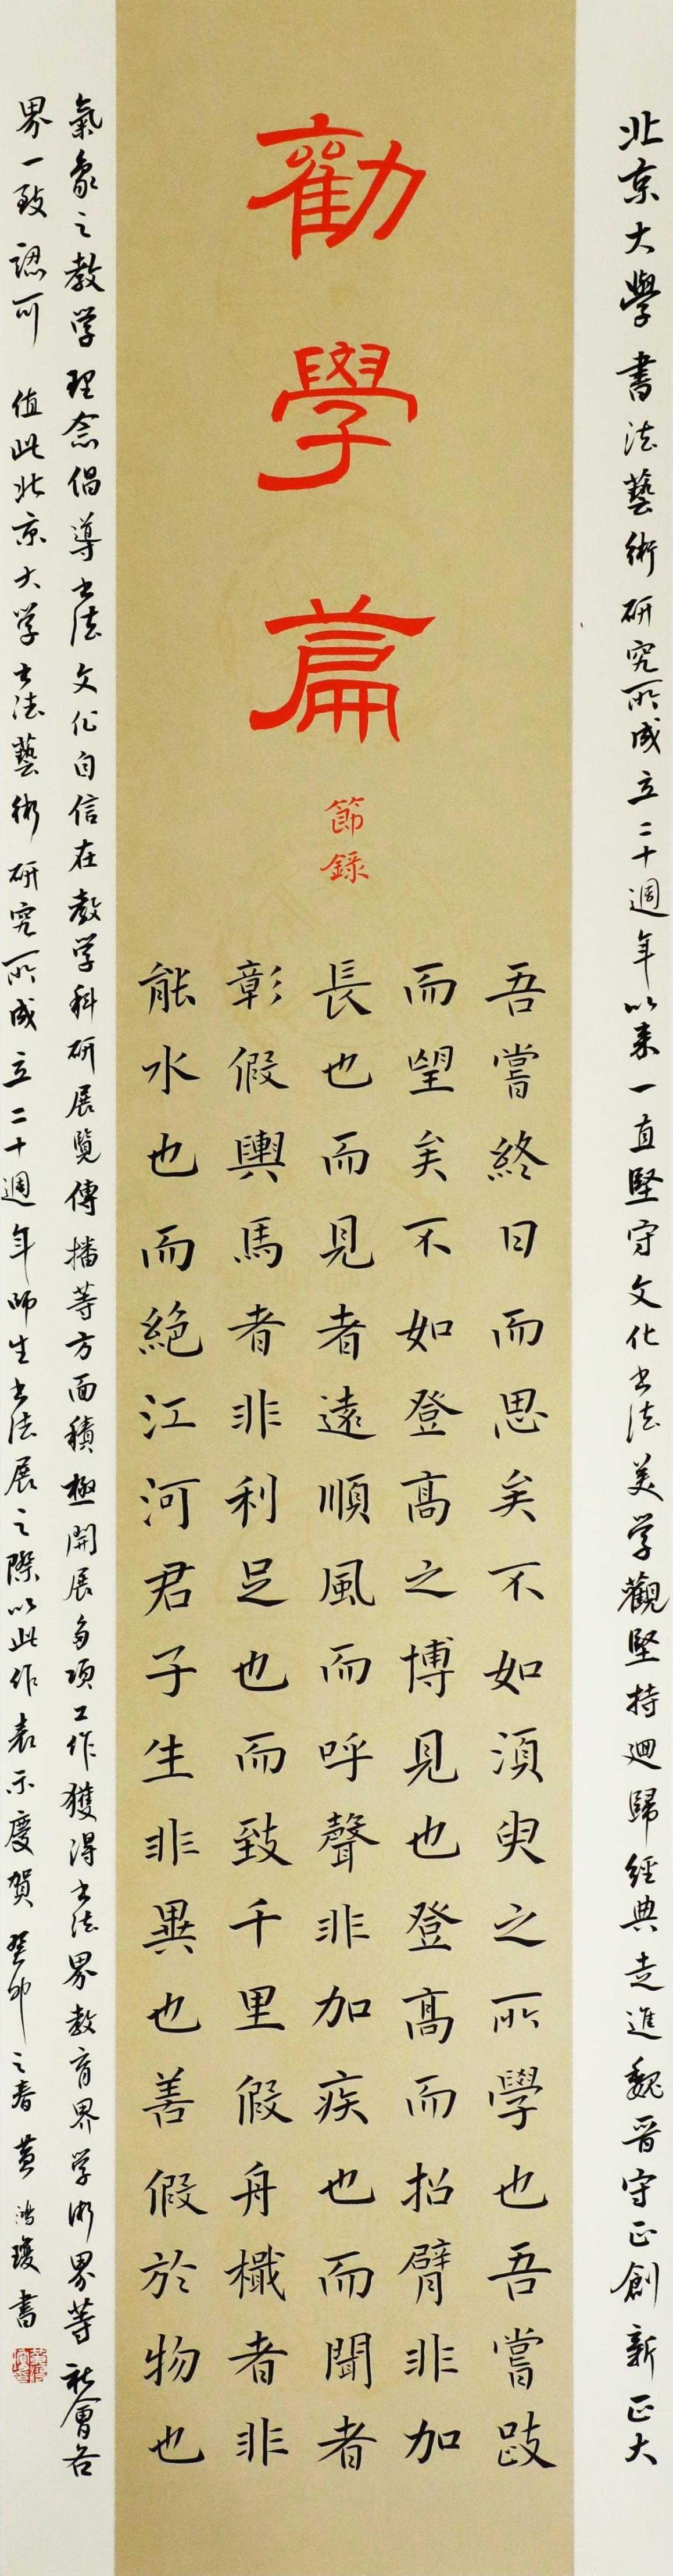 北京大學書法藝術研究所成立二十週年以来一直堅守文化书法美学觀堅持廻歸經典走進魏晋守正創新正大
勸學篇
節錄
吾嘗終日而思矣不如須臾之所學也吾嘗跂
而望矣不如登髙之博見也登髙而招臂非加
長也而見者遠順風而呼聲非加疾也而聞者
彰假輿馬者非利足也而致千里假舟檝者非
能水也而絶江河君子生非異也善假於物也
氣象之教学理念倡導书法文化自信在教学科研展覽傳播等方面積極開展多項工作獲得书法界教育界学術界等社會各
界一致認可 值此北京大学书法藝術研究所成立二十週年師生书法展之際以此作表示慶賀 癸卯之春 黄鴻瓊書